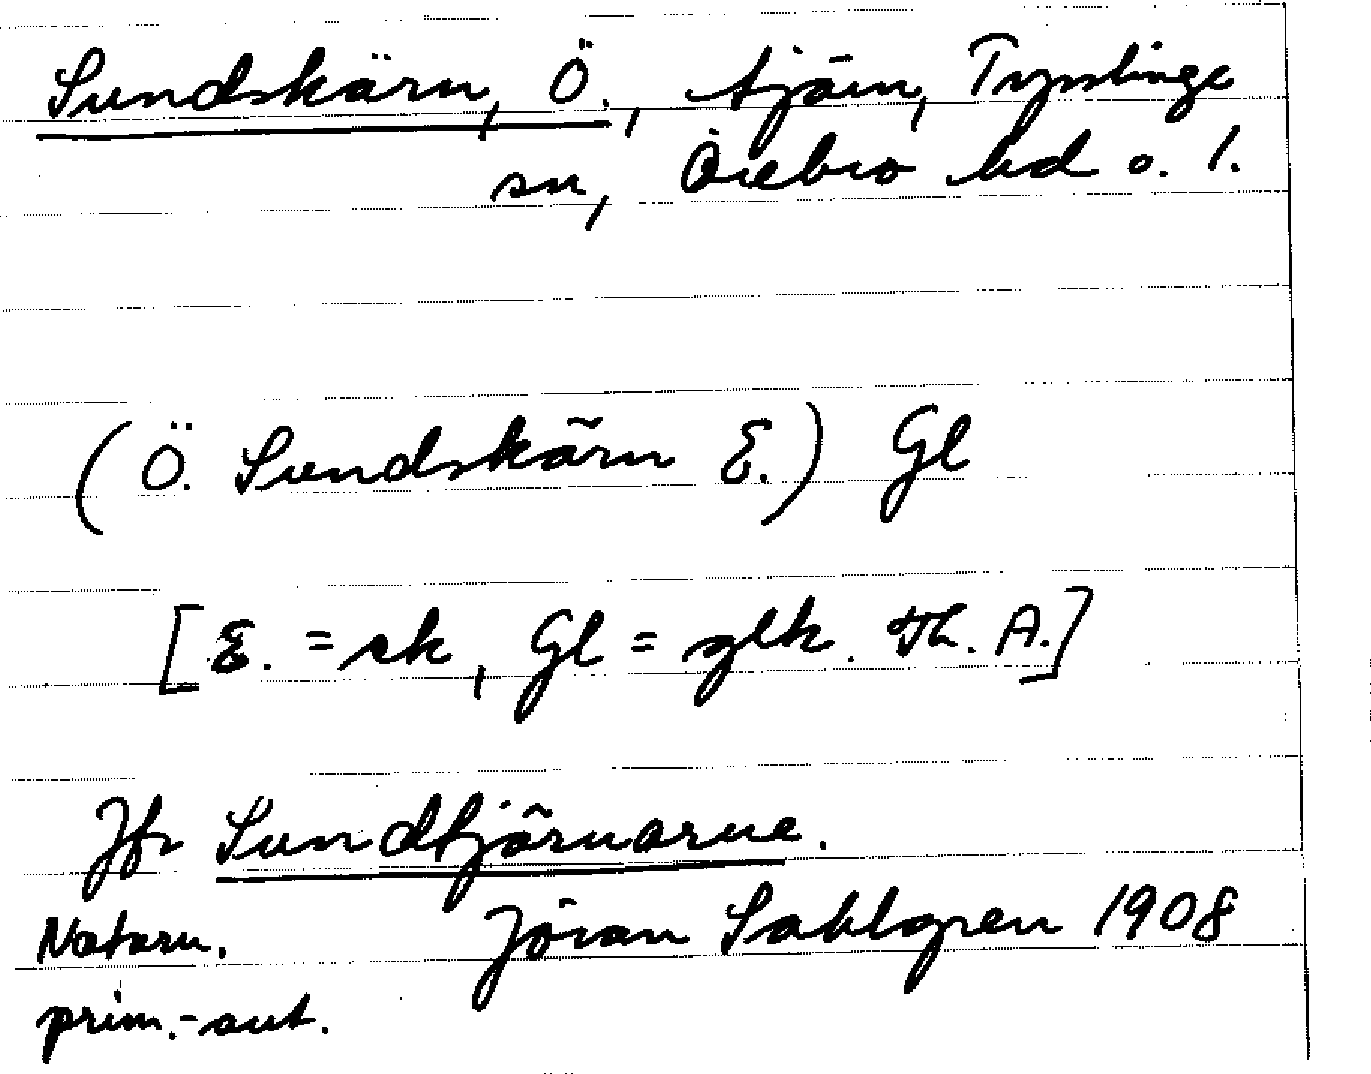 Sundskärn, Ö., tjärn, Tysslinge
sn, Örebro hd o. l.
(Ö. Sundskärn E.) Gl
[E. = ek, Gl = glk. Th. A.]
Jfr Sundtjärnarne.
Naturn. Jöran Sahlgren 1908
prim.-ant.